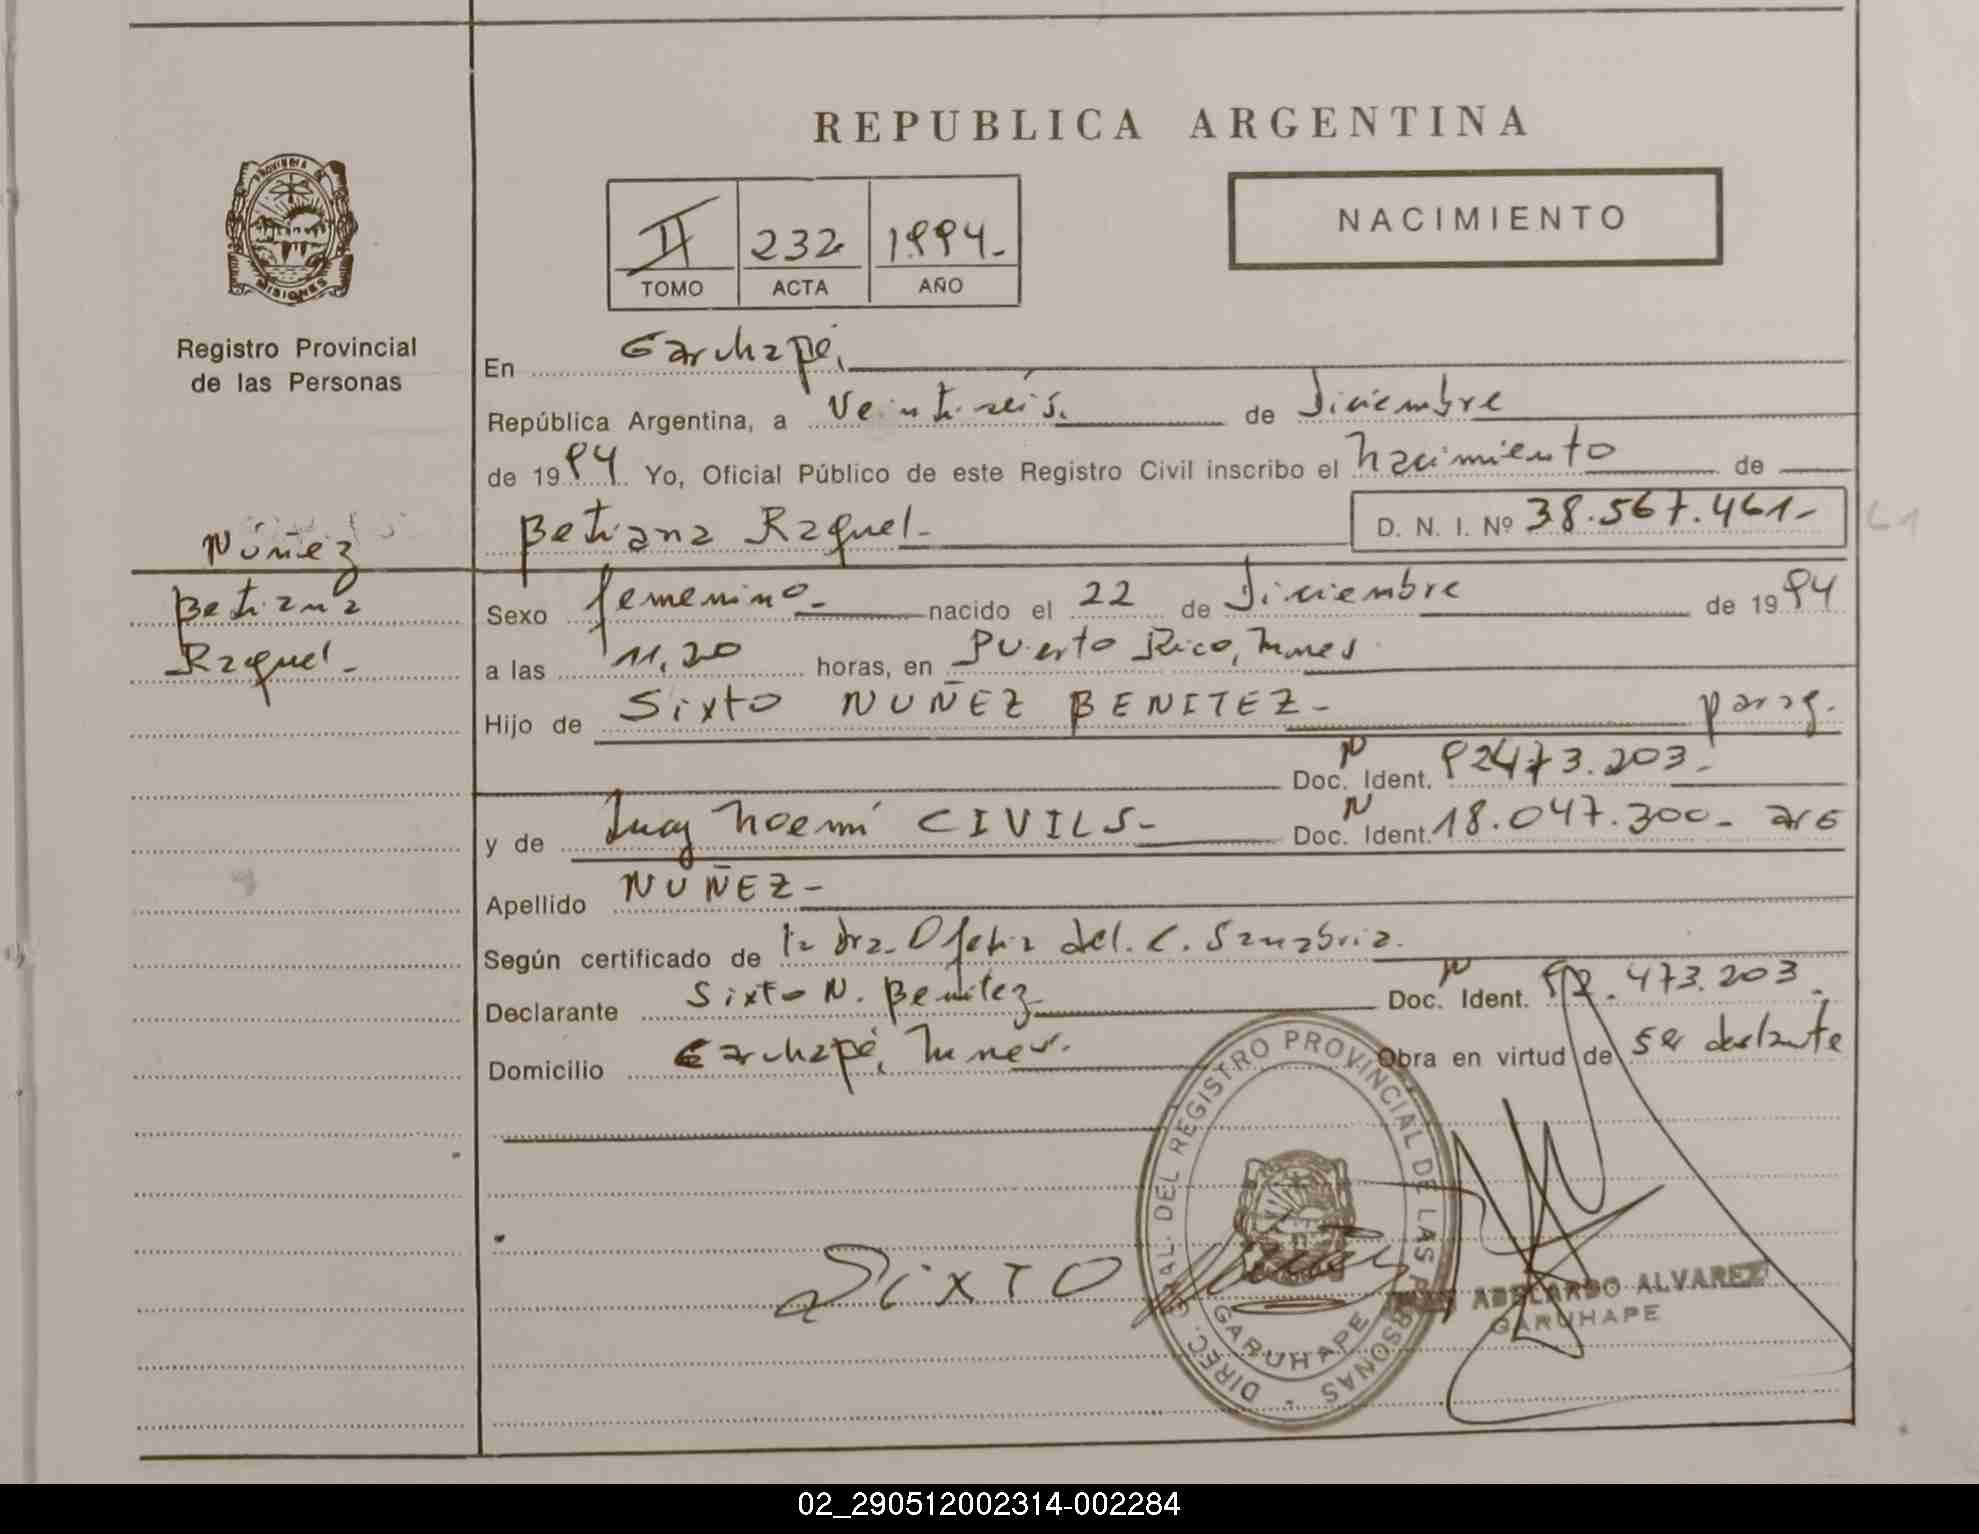 REPUBLICA ARGENTINA
PROVINCIA DE MISIONES
NACIMIENTO
II 232 1994-
TOMO ACTA AÑO
Registro Provincial
de las Personas
En Garuhapé,
República Argentina, a Veintiseis. de Diciembre
de 1994 Yo, Oficial Público de este Registro Civil inscribo el nacimiento de
Betiana Raquel- D. N. I. Nº 38.567.461-
61
Núñez
Betiana
Raquel-
Sexo femenino- nacido el 22 de Diciembre de 1994
a las 11,20 horas, en Puerto Rico, Mnes
Hijo de Sixto NUÑEZ BENITEZ- parag.
Doc. Ident. N 92473.203-
y de Lucy Noemí CIVILS- Doc. Ident. N 18.047.300- arg
Apellido NUÑEZ-
Según certificado de la Dra. Ofelia del. C. Sanabria.
Declarante Sixto N. Benitez Doc. Ident. N 92.473.203.
Domicilio Garuhapé, Mnes. Obra en virtud de ser declante
SixTO
DIREC. GRAL. DEL REGISTRO PROVINCIAL DE LAS PERSONAS -
GARUHAPE
ABELARDO ALVAREZ
GARUHAPE
02_290512002314-002284